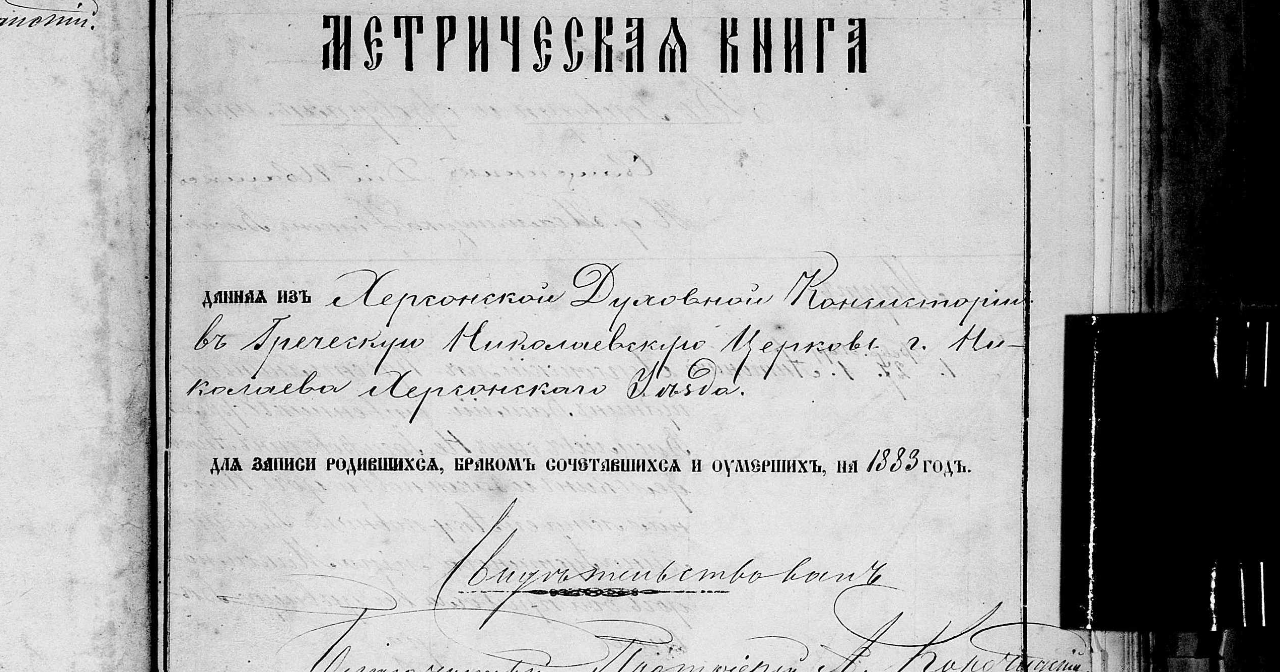 МЕТРИЧЕСКАЯ КНИГА
ДАННАЯ ИЗЪ Херсонской Духовной Консисторіи
въ Греческую Николаевскую Церковь г. Ни-
колаева Херсонскаго Уѣзда.
ДЛЯ ЗАПИСИ РОДИВШИХСЯ, БРАКОМЪ СОЧЕТАВШИХСЯ И ОУМЕРШИХЪ, НА 1883 ГОДЪ.
Свидѣтельствовалъ
Протоіерей А.